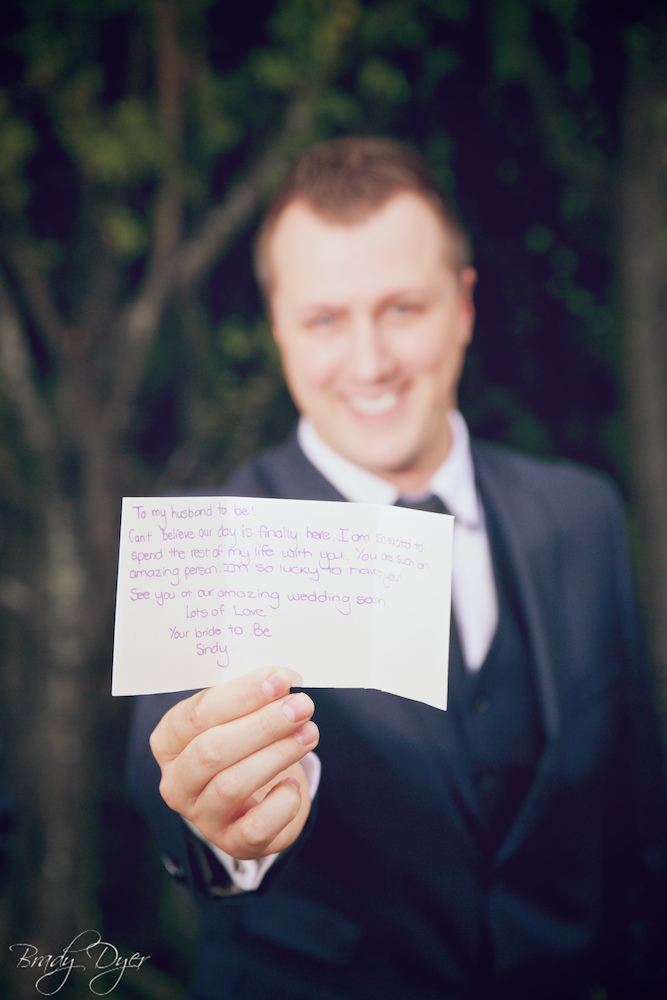 To my husband to be!
Cant believe our day is finally here I am so excited to
spend the rest of my life with you. You are such an
amazing person. I'm so lucky to have you!
See you at our amazing wedding soon
Lots of Love
Your bride to Be
Sindy
Brady Dyer